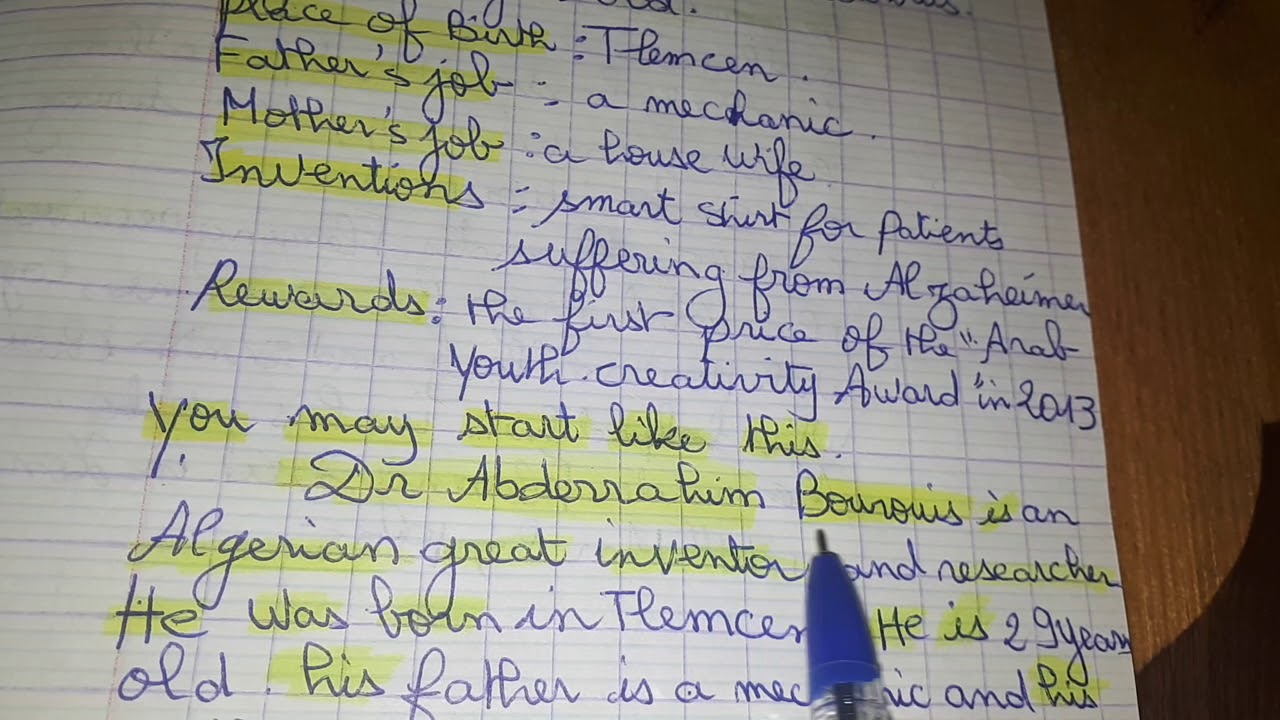 Place of Birth : Tlemcen .
Father's job : a mechanic .
Mother's job : a house wife
Inventions : smart shirt for patients
suffering from Alzaheimer
Rewards : the first price of the "Arab
Youth creativity Award" in 2013
You may start like this .
Dr Abderrahim Bourouis is an
Algerian great inventor and researcher
He was born in Tlemcen He is 29 years
old . his father is a mechanic and his